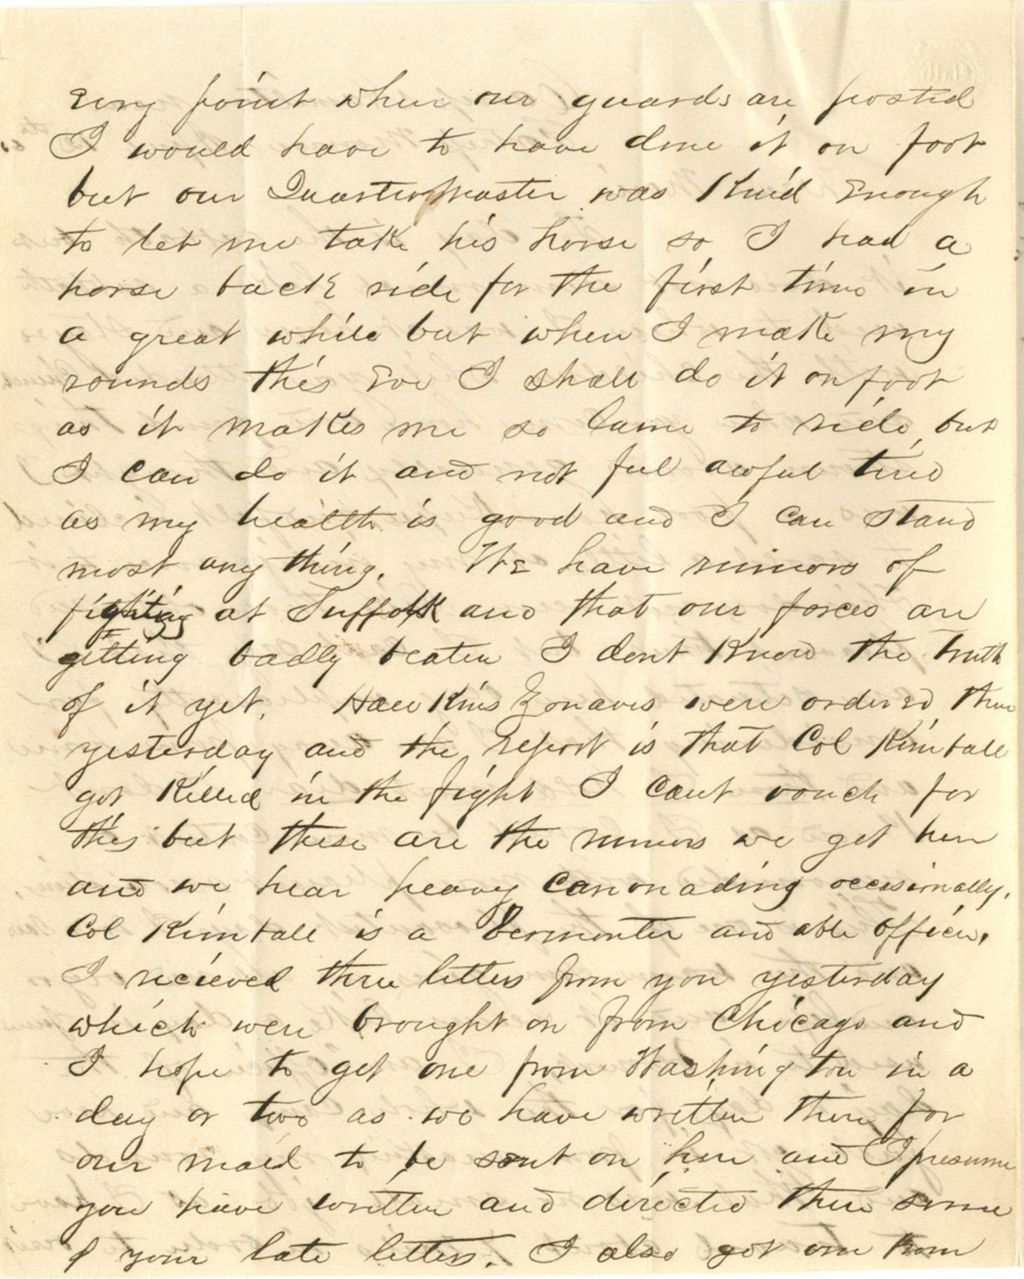 Evry point wher our guards are posted
I would have to have done it on foot
but our Quartermaster was Kind Enough
to let me take his horse so I had a
horse back ride for the first time in
a great while but when I make my
rounds this Eve I shall do it on foot
as it makes me so lame to ride, but
I can do it and not feel awful tired
as my health is good and I can stand
most any thing. We have rumors of
fighting at Suffolk and that our forces are
gitting badly beaten I dont Know the truth
of it yet. Hawkins Zouaves were ordered there
yesterday and the report is that Col Kimball
got Killed in the fight I cant vouch for
this but these are the rumors we get here
and we hear heavy canonading occasionally.
Col Kimball is a Vermonter and able officer.
I recieved three letters from you yesterday
which were brought on from Chicago and
I hope to get one from Washington in a
day or two as we have written there for
our mail to be sent on here and I presume
you have written and directed there some
of your late letters. I also got one from